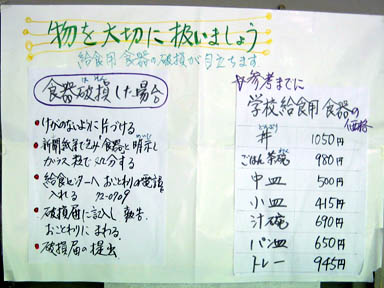 物を大切に扱いましょう
給食用食器の破損が目立ちます
食器破損した場合
●けがのないように片づける
●新聞紙等で包み"食器"と明示し
ガラス類で処分する
●給食センターへおことわりの電話を
入れる 72-0909
●破損届に記入し報告.
おことわりにまわる
●破損届の提出
☆参考までに
学校給食用食器の価格
丼 1050円
ごはん茶碗 980円
中皿 500円
小皿 415円
汁碗 690円
パン皿 650円
トレー 945円